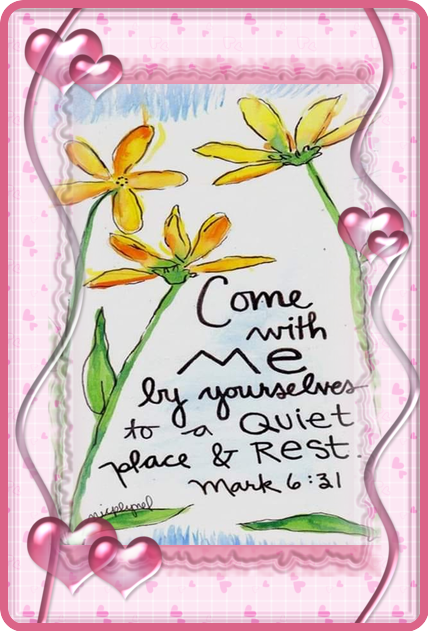 Come
with
me
by yourselves
to a Quiet
place & Rest.
Mark 6:31